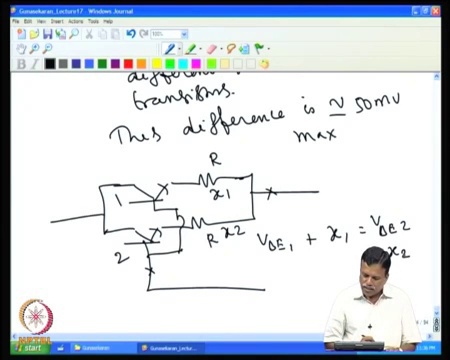 Gunasekaran_Lecture17 - Windows Journal
File Edit View Insert Actions Tools Help
100%
B I
difference
transistors.
This difference is ≃ 50mV
max
R
1
x1
R x2
2
VBE1 + x1 = VBE2
x2
NPTEL
start
Gunasekaran
Gunasekaran_Lec...